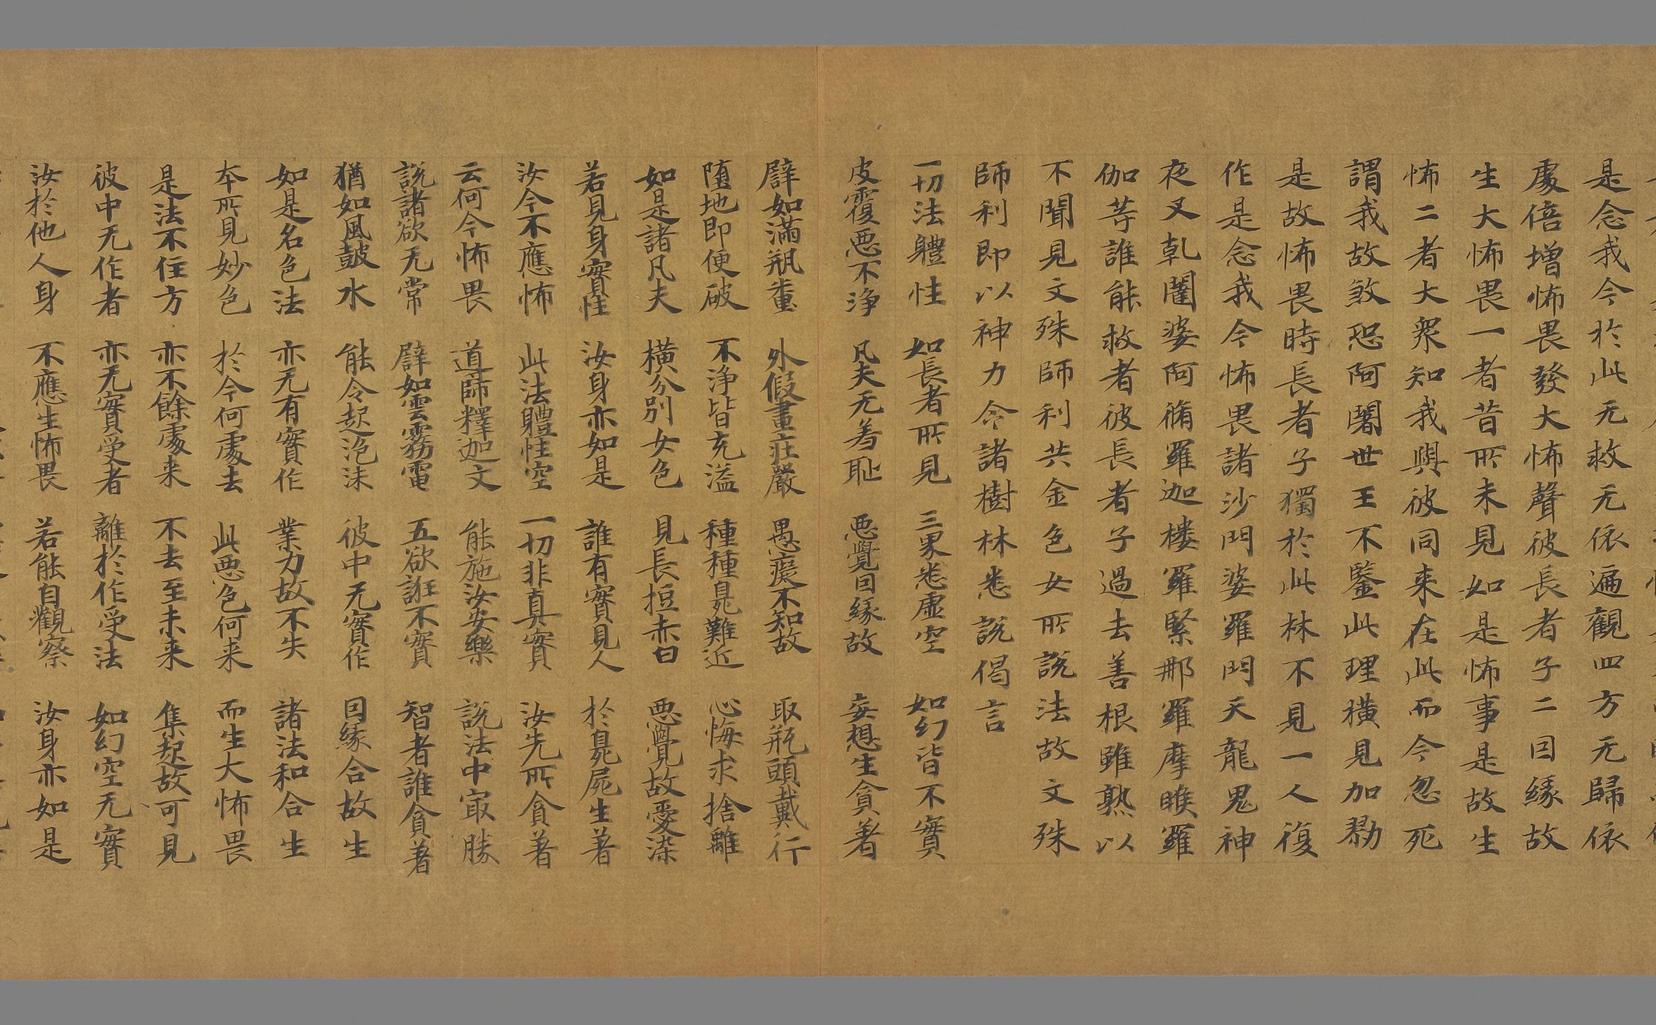 是念我今於此无救无依遍觀四方无歸依
處倍增怖畏發大怖聲彼長者子二因緣故
生大怖畏一者昔所未見如是怖事是故生
怖二者大衆知我與彼同来在此而今忽死
謂我故煞恐阿闍世王不鑒此理橫見加勠
是故怖畏時長者子獨於此林不見一人復
作是念我今怖畏諸沙門婆羅門天龍鬼神
夜叉乾闥婆阿脩羅迦樓羅緊那羅摩睺羅
伽等誰能救者彼長者子過去善根雖熟以
不聞見文殊師利共金色女所說法故文殊
師利即以神力令諸樹林悉說偈言
一切法體性 如長者所見 三界悉虛空 如幻皆不實
皮覆惡不淨 凡夫无羞耻 惡覺因緣故 妄想生貪著
譬如滿瓶糞 外假畫莊嚴 愚癡不知故 取瓶頭戴行
墮地即便破 不淨皆充溢 種種臭難近 心悔求捨離
如是諸凡夫 橫分別女色 見長短赤白 惡覺故愛染
若見身實性 汝身亦如是 誰有實見人 於臭屍生著
汝今不應怖 此法體性空 一切非真實 汝先所貪著
云何今怖畏 道師釋迦文 能施汝安樂 說法中冣勝
說諸欲无常 譬如雲霧電 五欲誑不實 智者誰貪著
猶如風皷水 能令起泡沫 彼中无實作 因緣合故生
如是名色法 亦无有實作 業力故不失 諸法和合生
本所見妙色 於今何處去 此惡色何来 而生大怖畏
是法不住方 亦不餘處来 不去至未来 集起故可見
彼中无作者 亦无實受者 離於作受法 如幻空无實
汝於他人身 不應生怖畏 若能自觀察 汝身亦如是